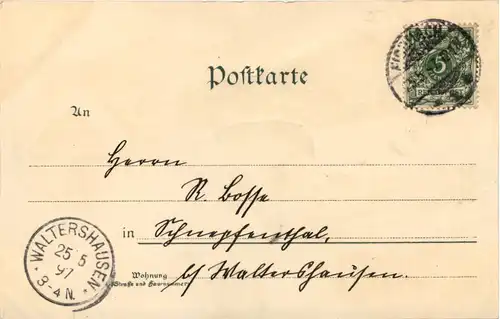 Postkarte
An
Herrn
R. Bosse
in Schnepfenthal,
Wohnung
(Straße und Hausnummer)
b/ Waltershausen.
WALTERSHAUSEN
25 5
97
3-4 N.
5
REICHSPOST